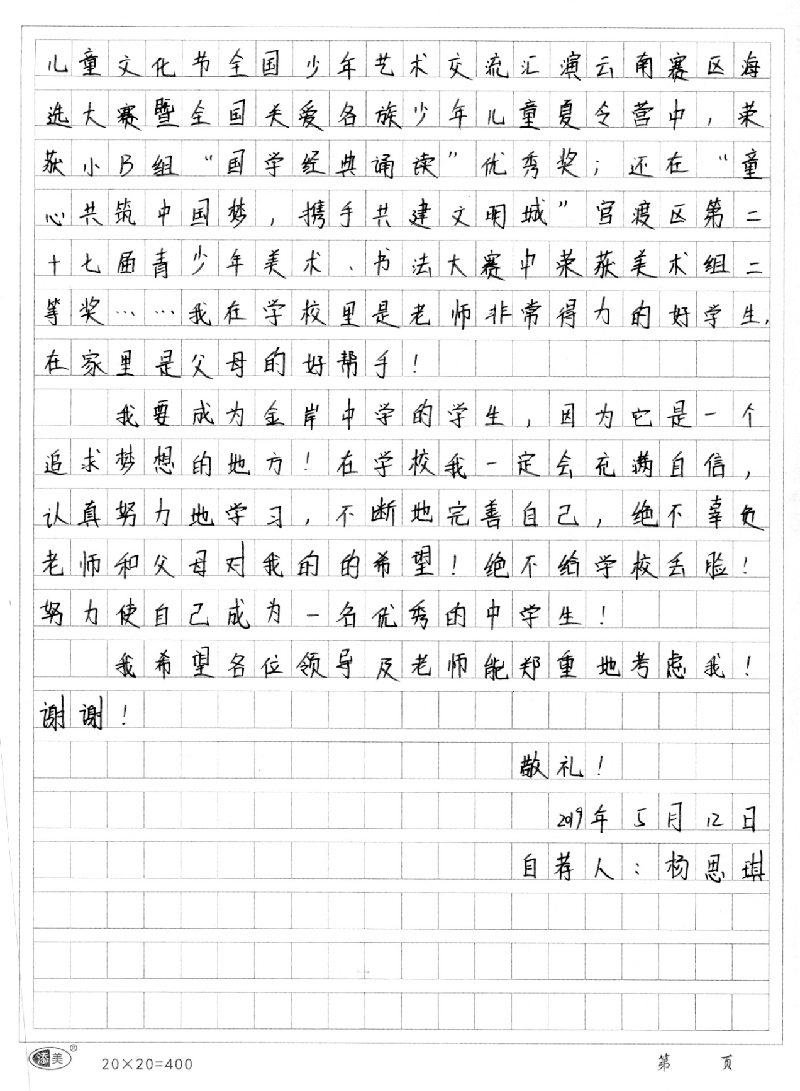 儿童文化节全国少年艺术交流汇演云南赛区海
选大赛暨全国关爱各族少年儿童夏令营中，荣
获小B组“国学经典诵读”优秀奖；还在“童
心共筑中国梦，携手共建文明城”官渡区第二
十七届青少年美术、书法大赛中荣获美术组二
等奖……我在学校里是老师非常得力的好学生，
在家里是父母的好帮手！
我要成为金岸中学的学生，因为它是一个
追求梦想的地方！在学校我一定会充满自信，
认真努力地学习，不断地完善自己，绝不辜负
老师和父母对我的的希望！绝不给学校丢脸！
努力使自己成为一名优秀的中学生！
我希望各位领导及老师能郑重地考虑我！
谢谢！
敬礼！
2019年5月12日
自荐人：杨思琪
美®
20×20=400
第 页